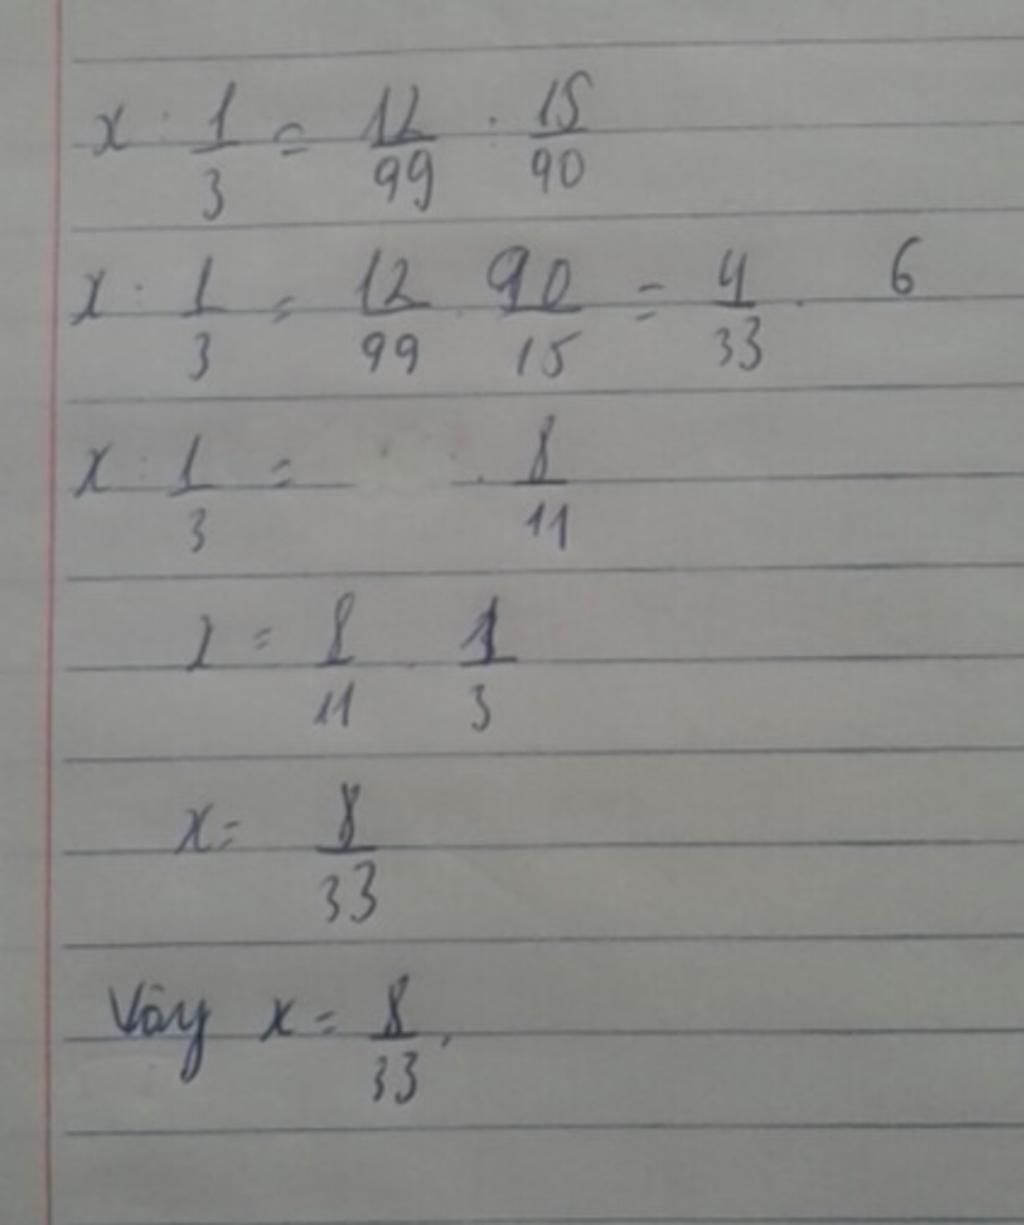 x : 1/3 = 12/99 : 15/90
x : 1/3 = 12/99 . 90/15 = 4/33 . 6
x : 1/3 = . 8/11
x = 8/11 . 1/3
x = 8/33
Vây x = 8/33.